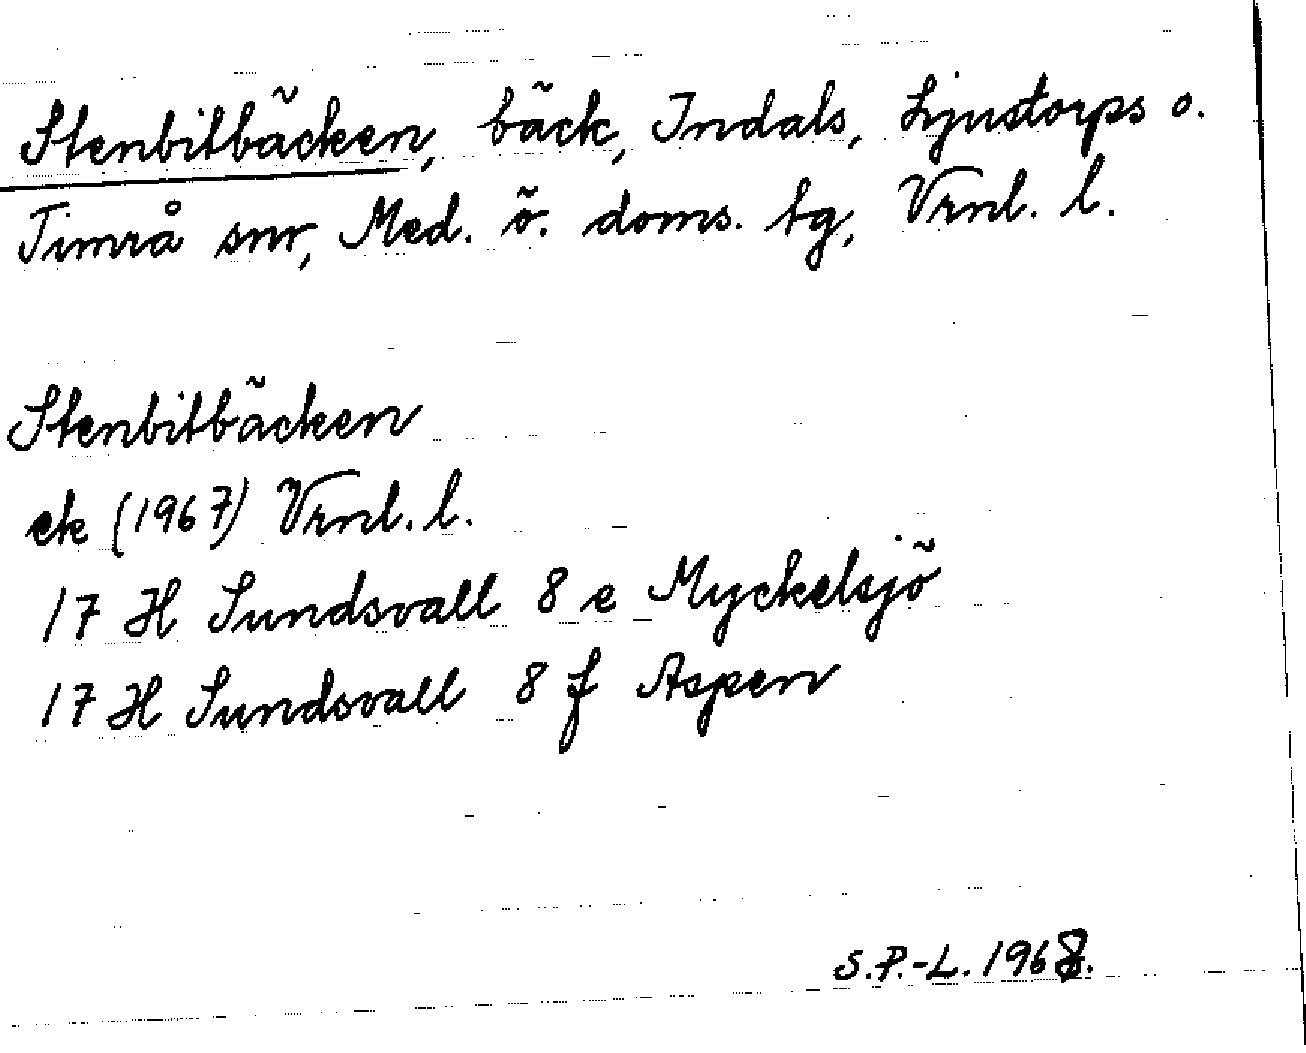 Stenbitbäcken, bäck, Indals, Ljustorps o.
Timrå snr, Med. ö. doms. tg, Vrnl. l.
Stenbitbäcken
ek (1967) Vrnl. l.
17 H Sundsvall 8 e Myckelsjö
17 H Sundsvall 8 f Aspen
S.P.-L. 1968.